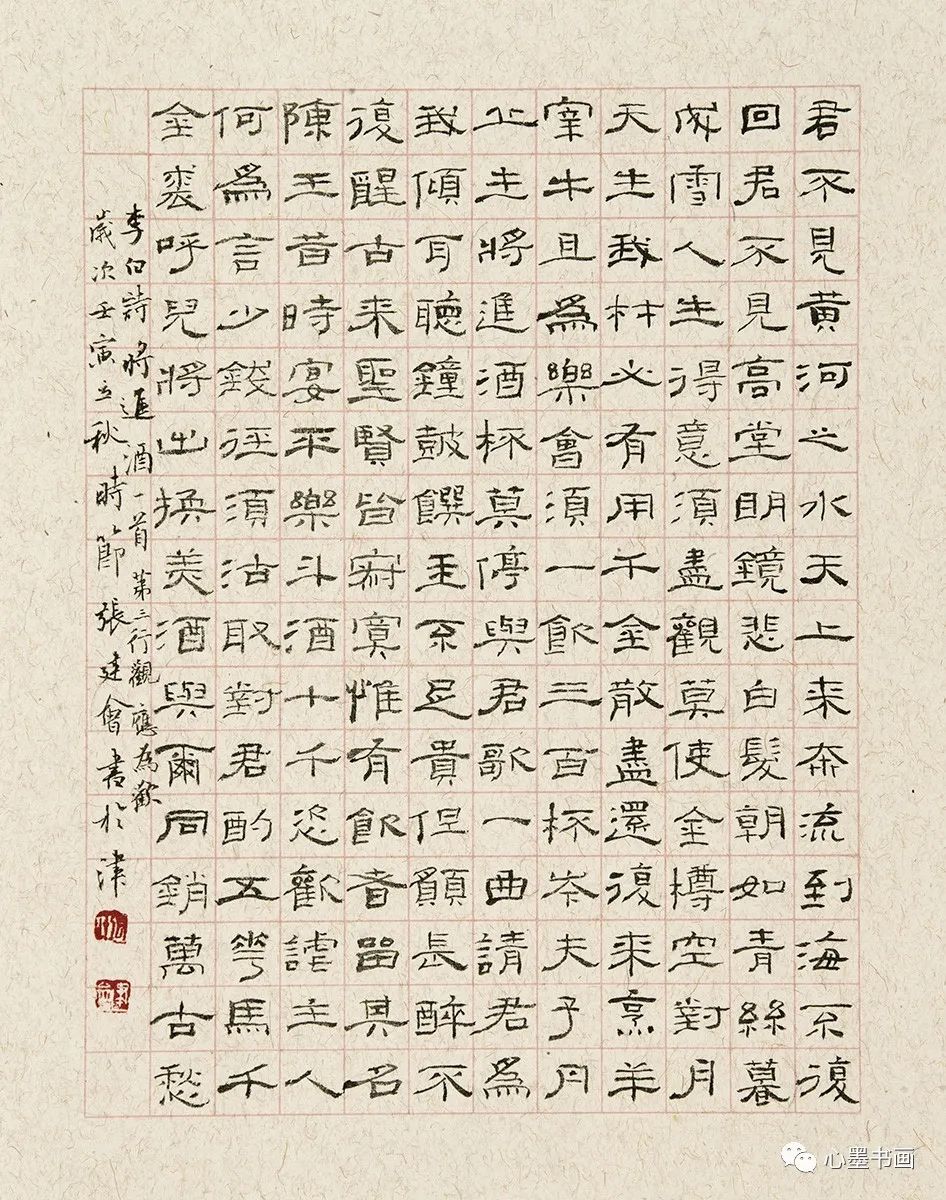 君不見黃河之水天上来奔流到海不復
回君不見高堂明鏡悲白髮朝如青絲暮
成雪人生得意須盡觀莫使金樽空對月
天生我材必有用千金散盡還復来烹羊
宰牛且爲樂會須一飲三百杯岑夫子丹
丘生將進酒杯莫停與君歌一曲請君爲
我傾耳聽鐘鼓饌玉不足貴但願長醉不
復醒古来聖賢皆寂寞惟有飲者留其名
陳王昔時宴平樂斗酒十千恣歡謔主人
何爲言少錢徑須沽取對君酌五花馬千
金裘呼兒將出換美酒與爾同銷萬古愁
李白詩將進酒一首第三行觀應為歡
歲次壬寅立秋時節張建會書於津
心墨书画